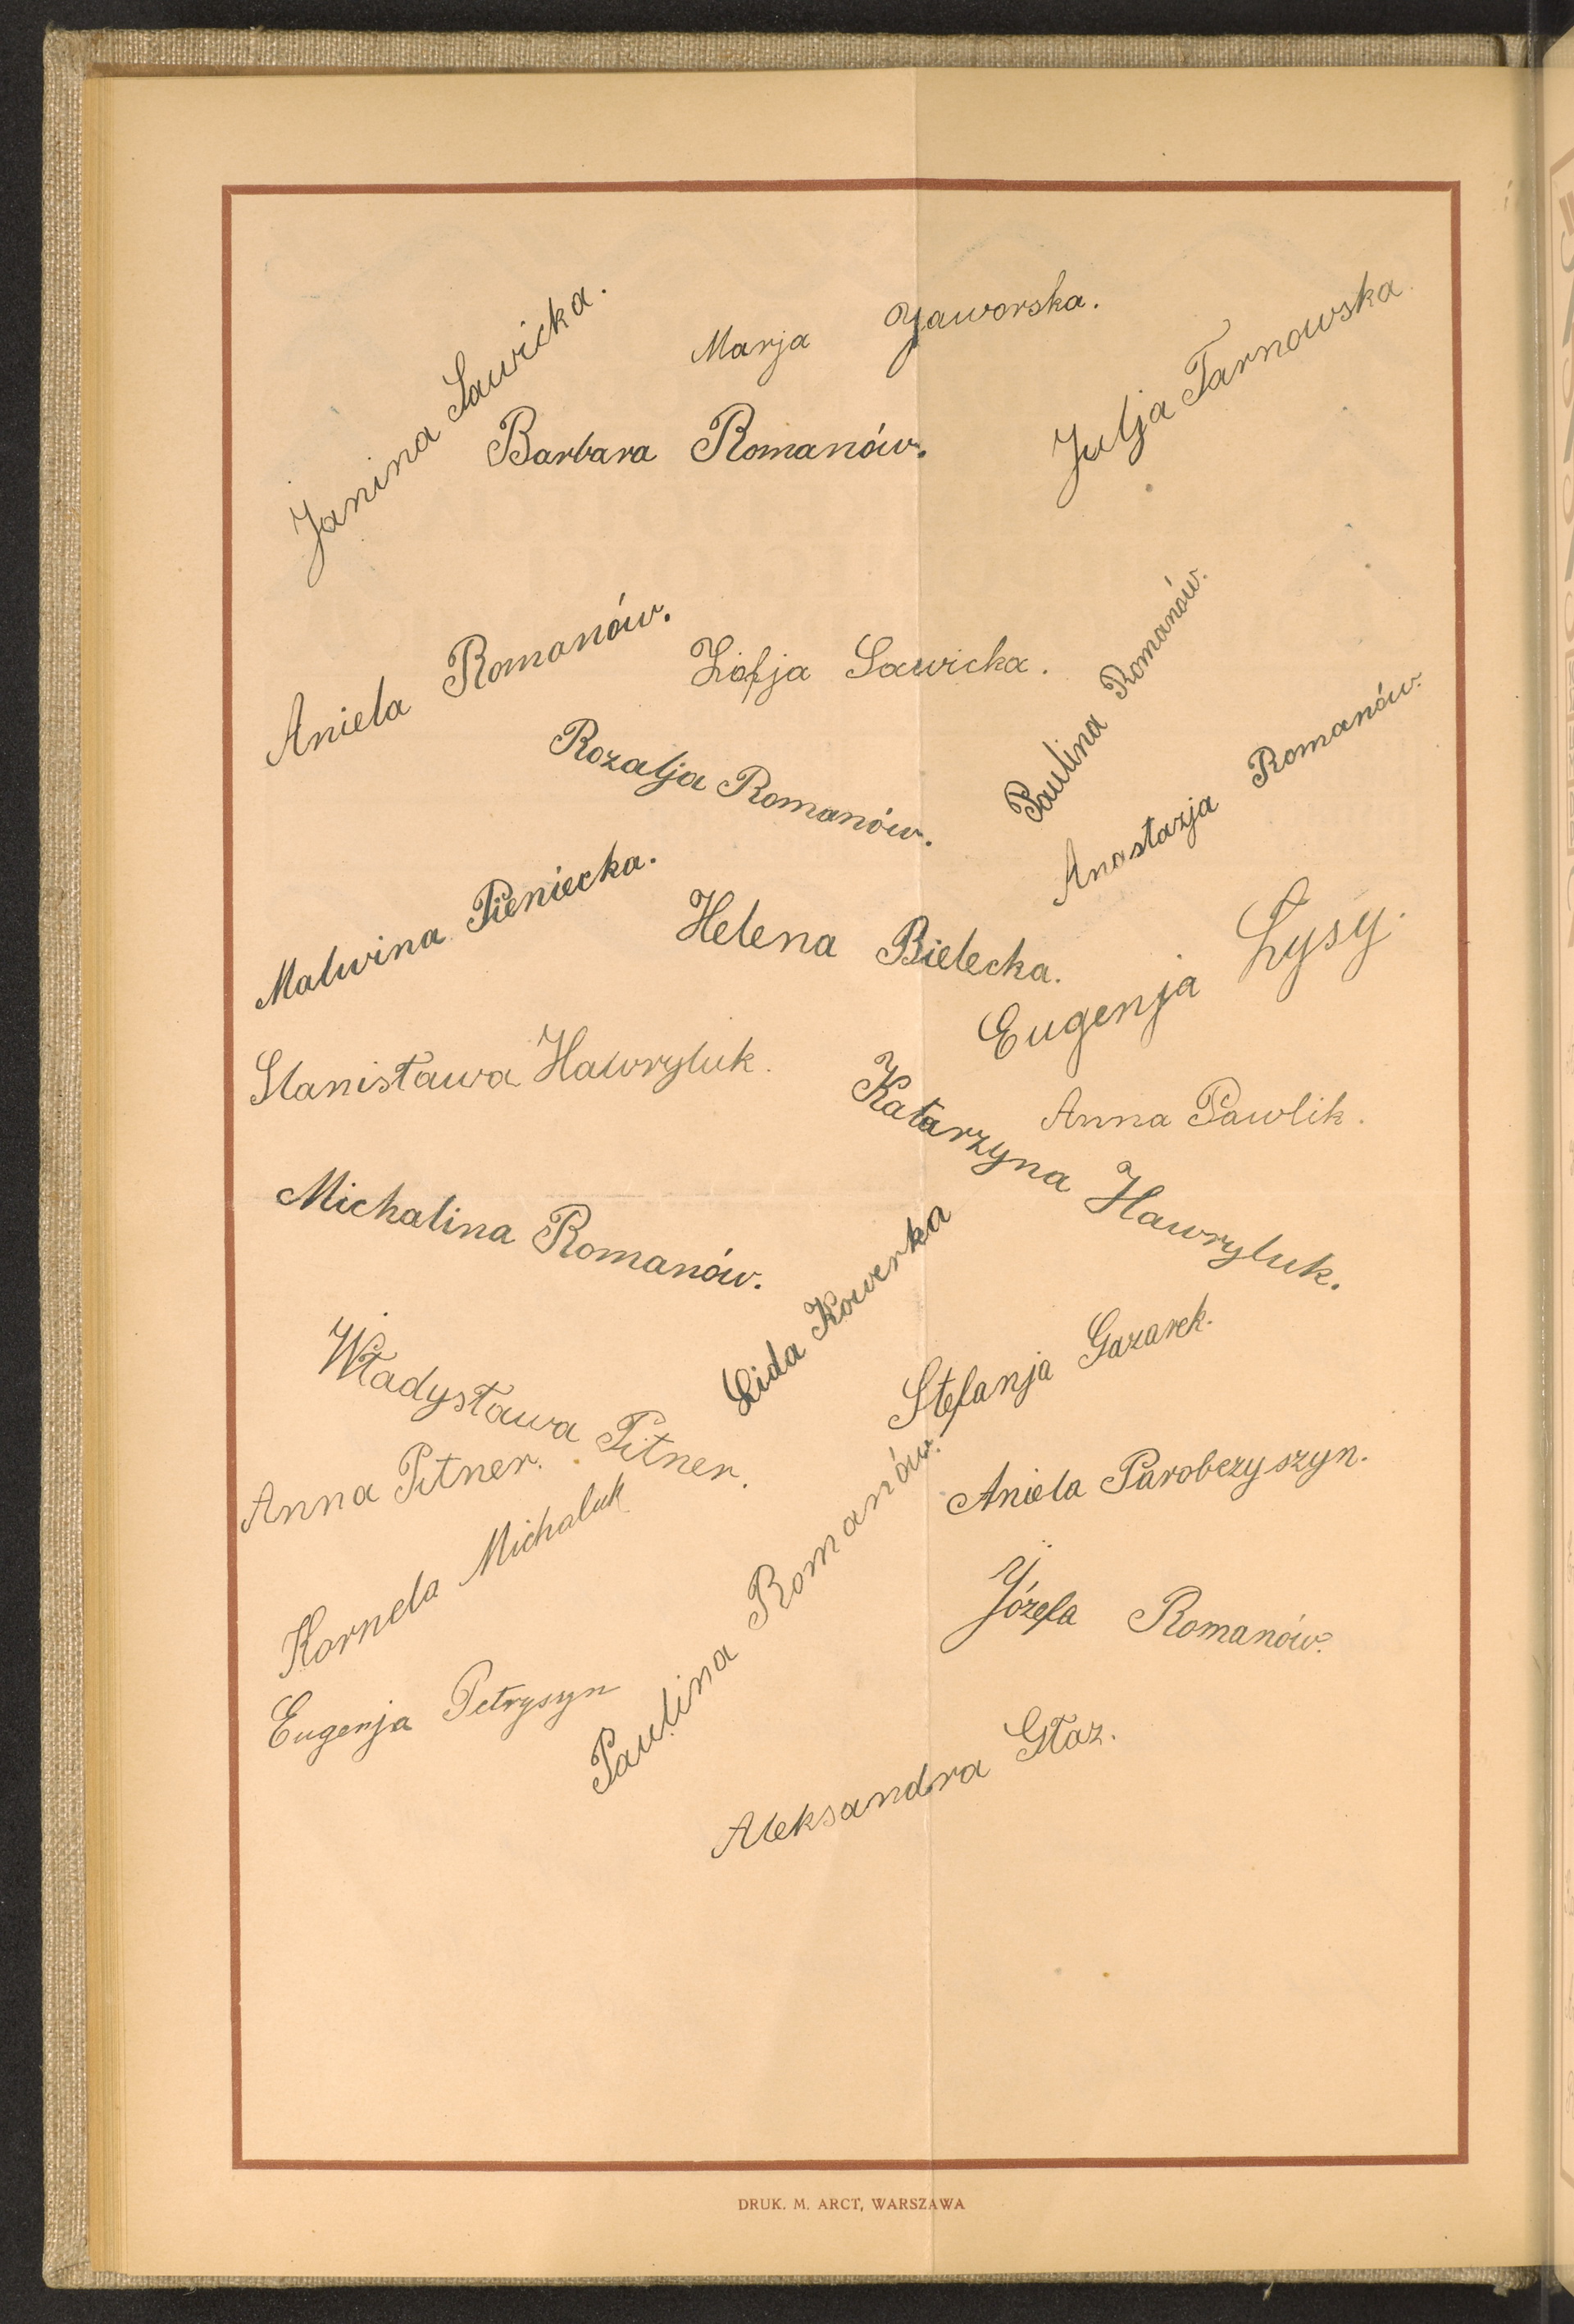 Janina Sawicka.
Marja Jaworska.
Julja Tarnowska.
Barbara Romanów.
Aniela Romanów.
Zofja Sawicka.
Paulina Romanów.
Rozalja Romanów.
Anastazja Romanów.
Malwina Pieniecka.
Helena Bielecka.
Eugenja Łysy.
Stanisława Hawryluk.
Katarzyna Hawryluk.
Anna Pawlik.
Michalina Romanów.
Lida Kowerka
Władysława Pitner.
Stefanja Gazarek.
Anna Pitner.
Aniela Parobczyszyn.
Kornela Michaluk
Paulina Romanów.
Józefa Romanów.
Eugenja Petrysyn
Aleksandra Głaz.
DRUK. M. ARCT, WARSZAWA